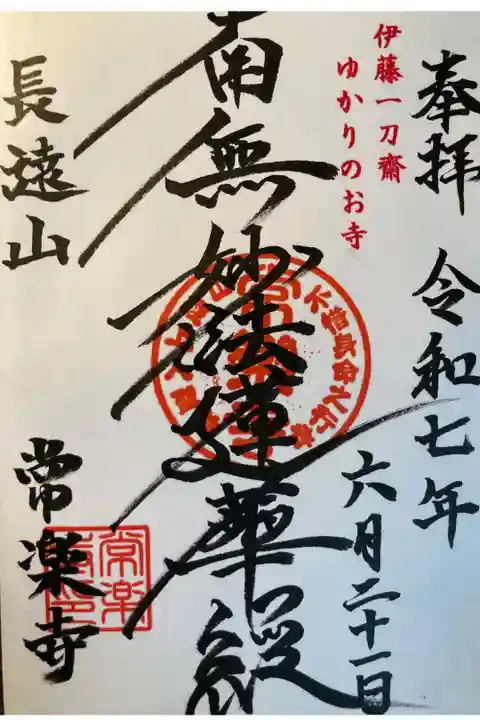 奉拝 令和七年
六月二十一日
伊藤一刀齋
ゆかりのお寺
南無妙法蓮華経
長遠山
常楽寺
常楽